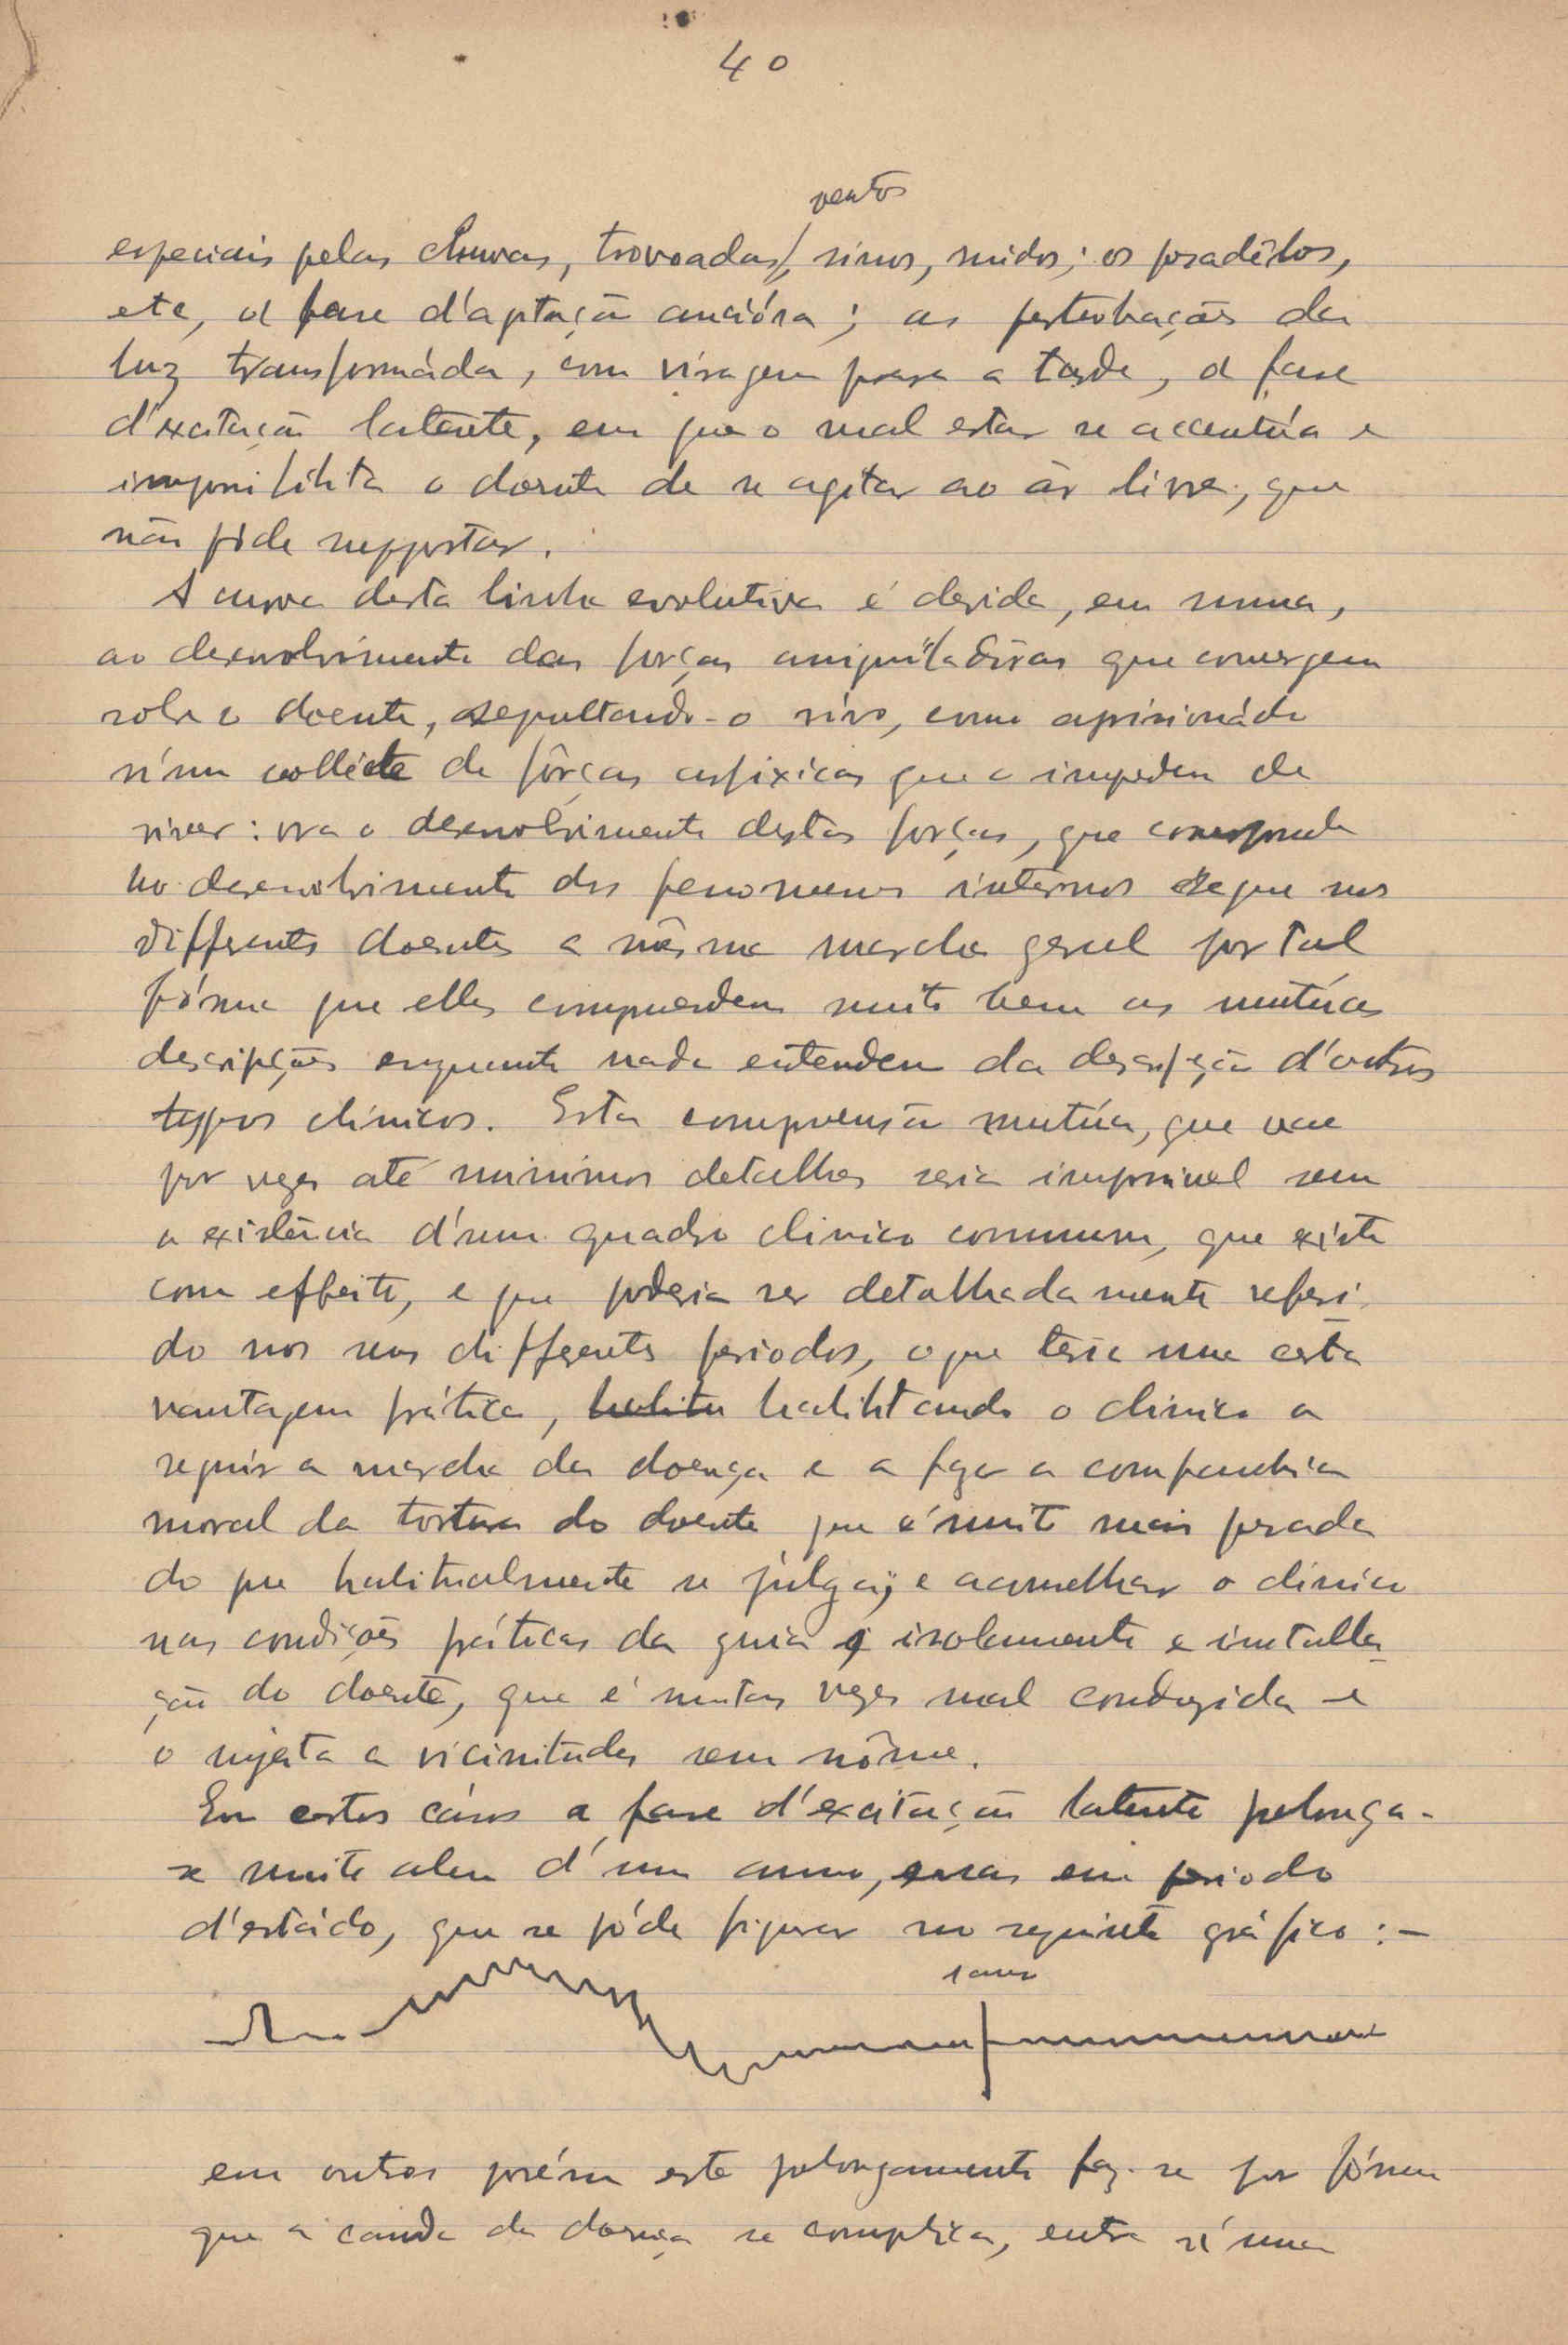 40
ventos
especiais pelas chuvas, trovoadas, sinos, ruidos; os pesadêlos,
etc, a fase d'aptação anciósa; as perturbações da
luz transformáda, com viragem para a tarde, a fase
d'excitação latente, em que o mal estar se accentúa e
impossibilita o doente de se agitar ao ár livre, que
não póde suppostar.
A curva desta linha evolutiva é devida, em summa,
ao desenvolvimento das forças aniquiladôras que convergem
sobre o doente, sepultando-o vivo, como aprisionádo
n'um collête de fôrças asfixicas que o impedem de
viver: ora o desenvolvimento destas forças, que corresponde
ao desenvolvimento dos fenomenos internos segue nos
differentes doentes a mêsma marcha geral por tal
fórma que elles comprendem muito bem as mutúas
descripções enquanto nada entendem da descripção d'outros
typos clinicos. Esta comprensão mutúa, que vae
por vezes até minimos detalhes seria impossivel sem
a existência d'um quadro clinico commum, que existe
com effeito, e que poderia ser detalhadamente referi-
do nos seus differentes periodos, o que teria uma certa
vantagem prática, habilitando o clinico a
seguir a marcha da doença e a fazer a companhia
moral da tortura do doente que é muito mais pesada
do que habitualmente se julga; e aconselhar o clinico
nas condições práticas da guia isolamento e installa-
ção do doente, que é muitas vezes mal conduzida e
o sujeita a vicissitudes sem nôme.
Em certos cásos a fase d'excitação latente prolonga-
se muito alem d'um anno, mas em periodo
d'estádo, que se póde figurar no seguinte gráfico:—
1 anno
em outros porém este prolongamento faz-se por fórma
que a cauda da doença se complica, entra n'uma